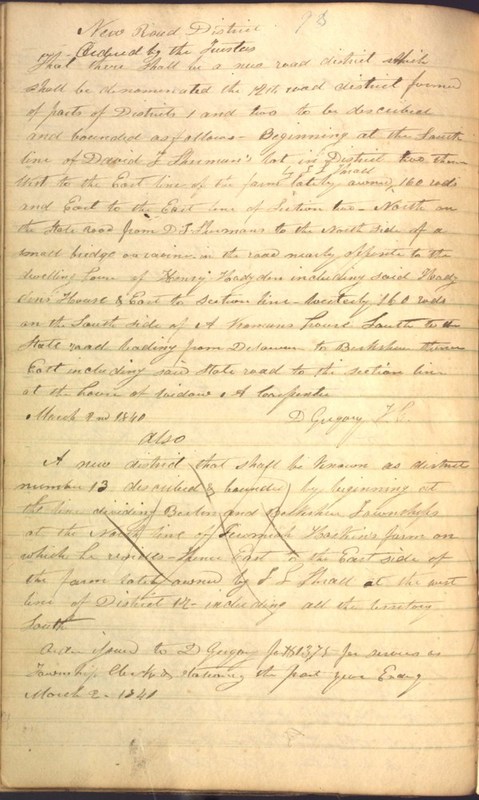 New Road District 98
Ordered by the Trustees
That there shall be a new road district which
shall be denominated the 12th road district formed
of parts of Districts 1 and two to be described
and bounded as follows - Beginning at the South
line of David T Sherman's lot in District two then
by S L Thrall
West to the East line of the farm lately owned 160 rods
and East to the East line of Section two - North on
the State road from D. T. Shermans to the North side of a
small bridge or ravine in the road nearly opposite to the
dwelling house of Henry including said
House & East to section line - Westerly 160 rods
on the South side of A Vromans house South to the
State road leading from Delaware to Berkshire thence
East including said State road to the section line
at the house of widow A Carpenter
March 2nd 1840 D Gregory T C.
Also
A new district that shall be known as district
number 13 described & bounded by beginning at
the line dividing Berlin and Berkshire Townships
at the North line of Jeremiah farm on
which he resides - thence East to the East side of
the farm lately owned by S L Thrall at the west
line of District 12 - including all the territory
South
Order issued to D Gregory for $13.75 for services as
Township Clerk & stationery the past year Ending
March 2 - 1840